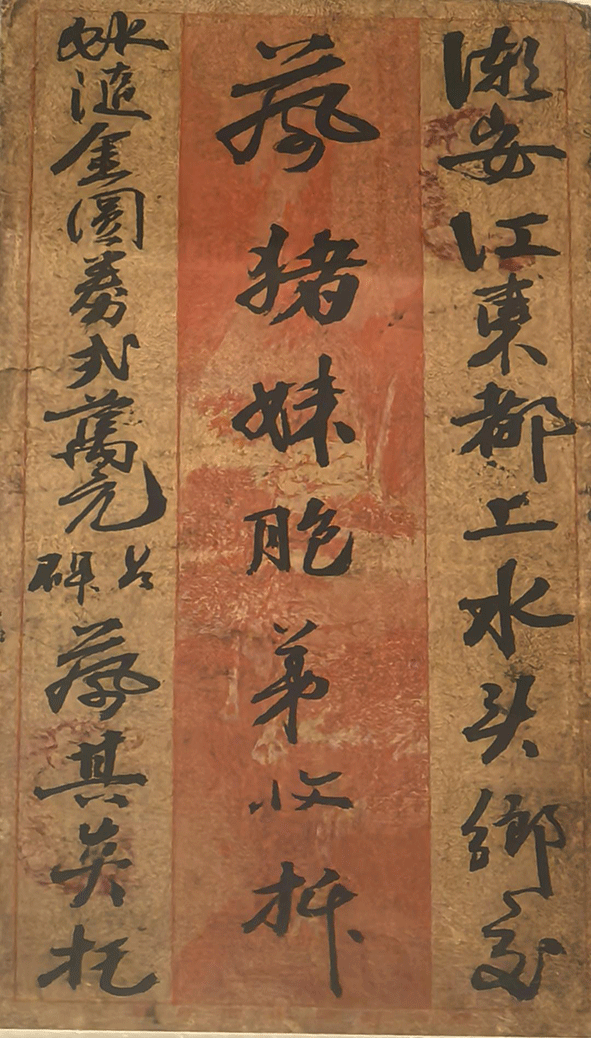 潮安江東都上水头鄉交
蔡猪妹胞弟收拆
金圓券弍萬元蔡其英托